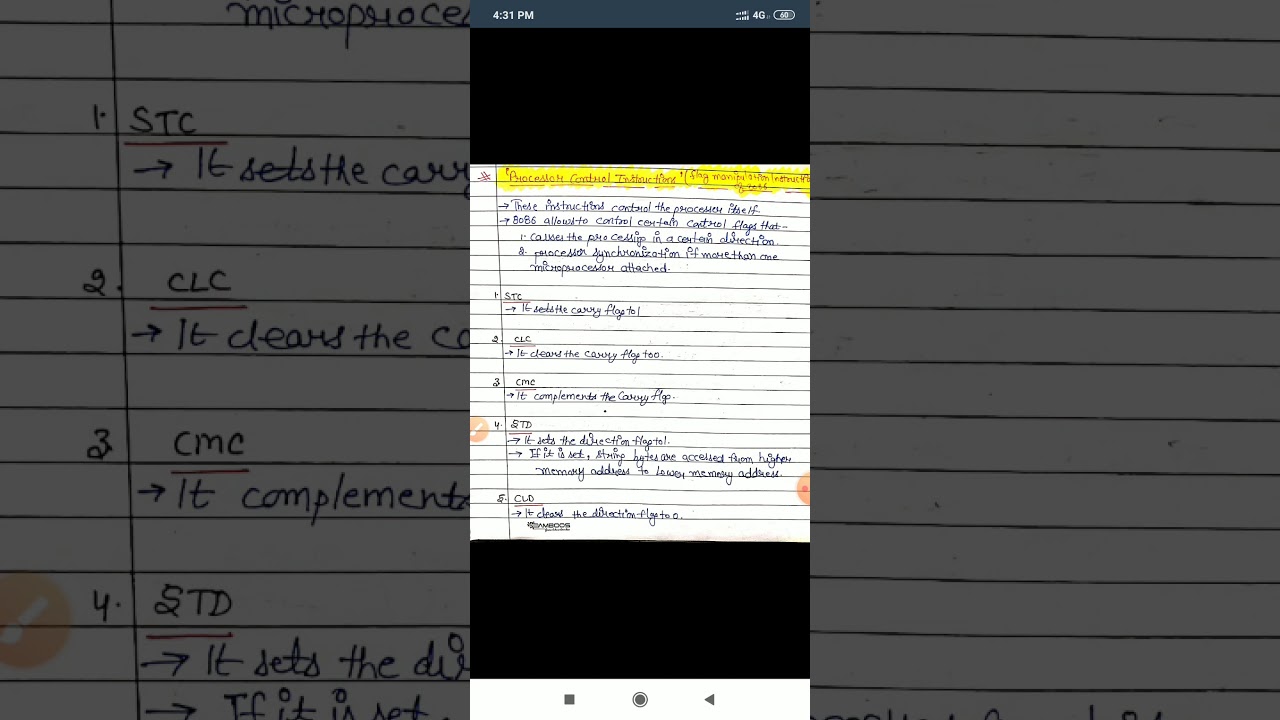 microproces
1. STC
→ It sets the carry
2. CLC
→ It clears the ca
3 CMC
→ It complements
4. STD
→ It sets the dire
→ If it is set,
4:31 PM
4G 60
"Processor Control Instructions" (flag manipulation Instructio
of 8086
→ These instructions control the processor itself.
→ 8086 allows to control certain control flags that-
1. causes the processing in a certain direction.
2. processor synchronization if more than one
microprocessor attached.
1. STC
→ It sets the carry flag to 1
2. CLC
→ It clears the carry flag to 0.
3 CMC
→ It complements the Carry flag.
4. STD
→ It sets the direction flag to 1.
→ If it is set, string bytes are accessed from higher
memory address to lower memory address.
5. CLD
→ It clears the direction flag to 0.